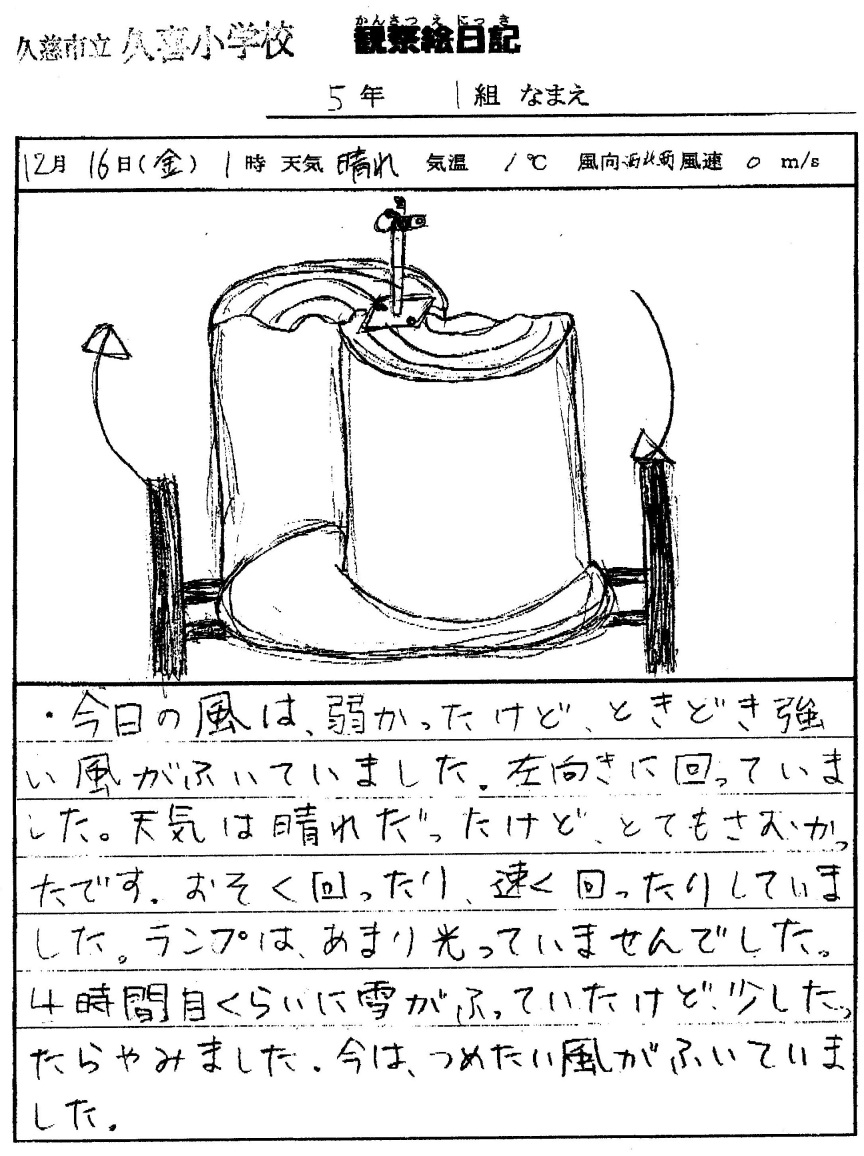 久慈市立 久喜小学校
かんさつえにっき
観察絵日記
5年 1組 なまえ
12月 16日(金) 1時 天気 晴れ 気温 1℃ 風向 西北西 風速 0 m/s
・今日の風は、弱かったけど、ときどき強
い風がふいていました。左向きに回っていま
した。天気は晴れだったけど、とてもさむかっ
たです。おそく回ったり、速く回ったりしていま
した。ランプは、あまり光っていませんでした。
4時間目くらいに雪がふっていたけど、少したっ
たらやみました。今は、つめたい風がふいていま
した。